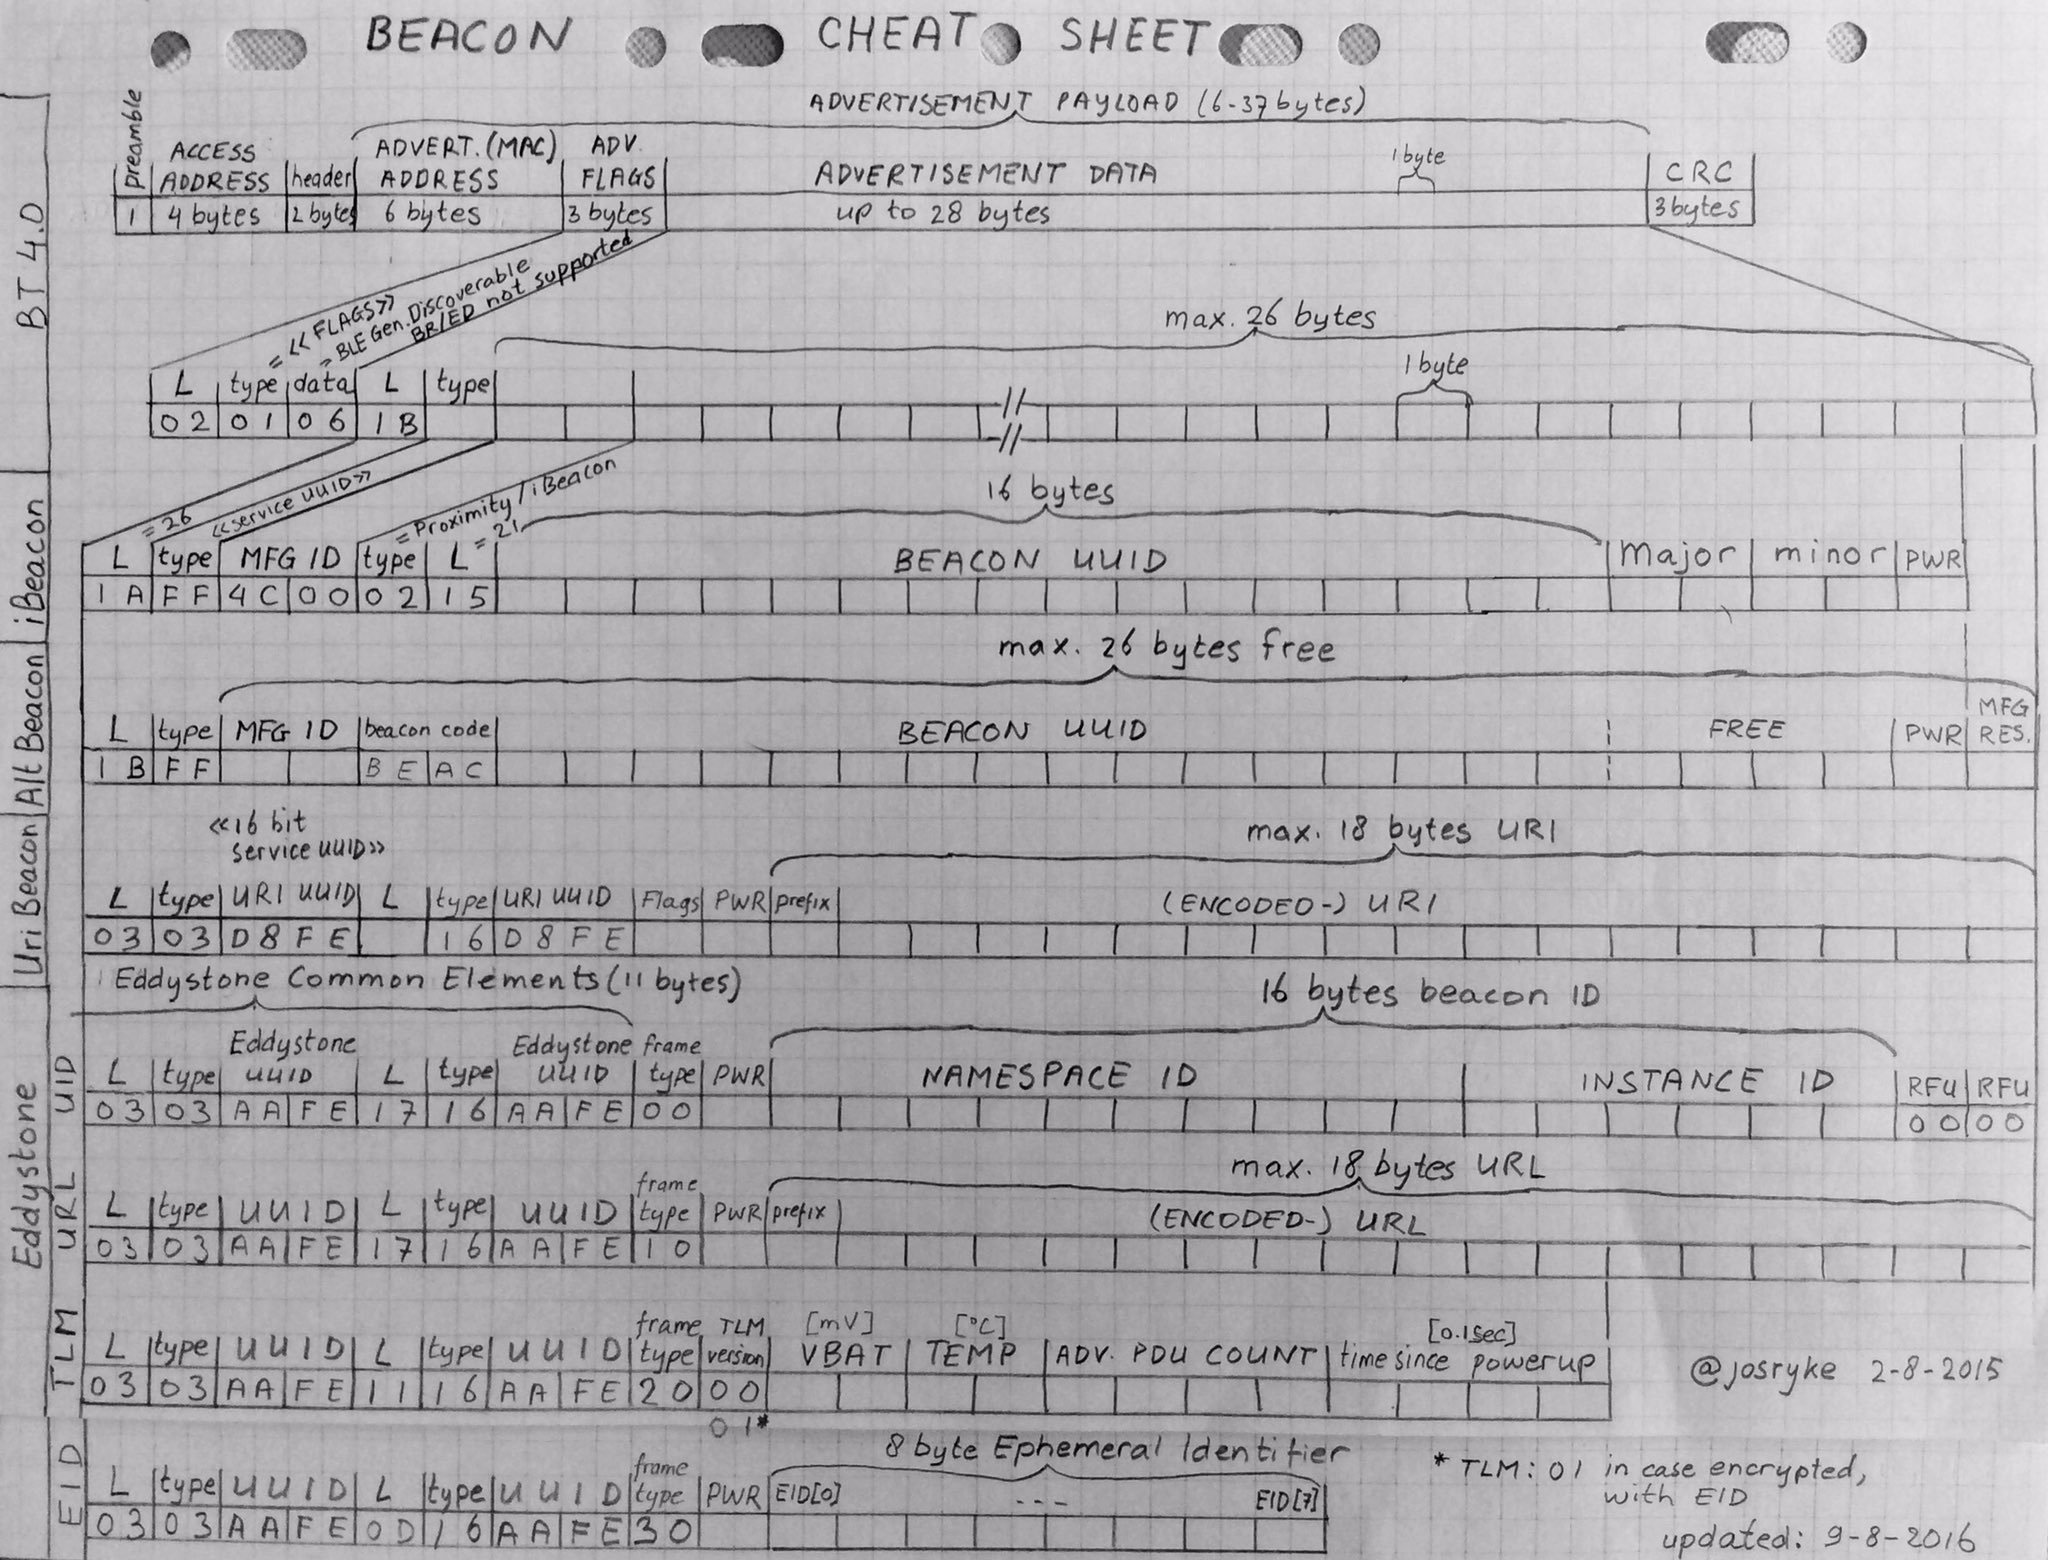 BEACON CHEAT SHEET
ADVERTISEMENT PAYLOAD (6-37 bytes)
preamble
ACCESS ADVERT. (MAC) ADV.
ADDRESS header ADDRESS FLAGS ADVERTISEMENT DATA 1 byte CRC
1 4 bytes 2 bytes 6 bytes 3 bytes up to 28 bytes 3 bytes
BT 4.0
= <<FLAGS>>
= BLE Gen. Discoverable
BR/ED not supported
max. 26 bytes
L type data L type 1 byte
02 01 06 1B
iBeacon
= 26 <<service UUID>> = Proximity/iBeacon = 21 16 bytes
L type MFG ID type L BEACON UUID Major minor PWR
1A FF 4C 00 02 15
Alt Beacon
max. 26 bytes free
L type MFG ID beacon code BEACON UUID FREE PWR MFG RES.
1B FF BE AC
Uri Beacon
<<16 bit
service UUID>>
max. 18 bytes URI
L type URI UUID L type URI UUID Flags PWR prefix (ENCODED-) URI
03 03 D8 FE 16 D8 FE
Eddystone
Eddystone Common Elements (11 bytes) 16 bytes beacon ID
UID
Eddystone Eddystone frame
L type UUID L type UUID type PWR NAMESPACE ID INSTANCE ID RFU RFU
03 03 AA FE 17 16 AA FE 00 00 00
URL
max. 18 bytes URL
frame
L type UUID L type UUID type PWR prefix (ENCODED-) URL
03 03 AA FE 17 16 AA FE 10
TLM
frame TLM [mV] [°C] [0.1sec]
L type UUID L type UUID type version VBAT TEMP ADV. PDU COUNT time since powerup
03 03 AA FE 11 16 AA FE 20 00
01*
@josryke 2-8-2015
EID
8 byte Ephemeral Identifier
frame
L type UUID L type UUID type PWR EID[0] --- EID[7]
03 03 AA FE 0D 16 AA FE 30
* TLM: 01 in case encrypted,
with EID
updated: 9-8-2016